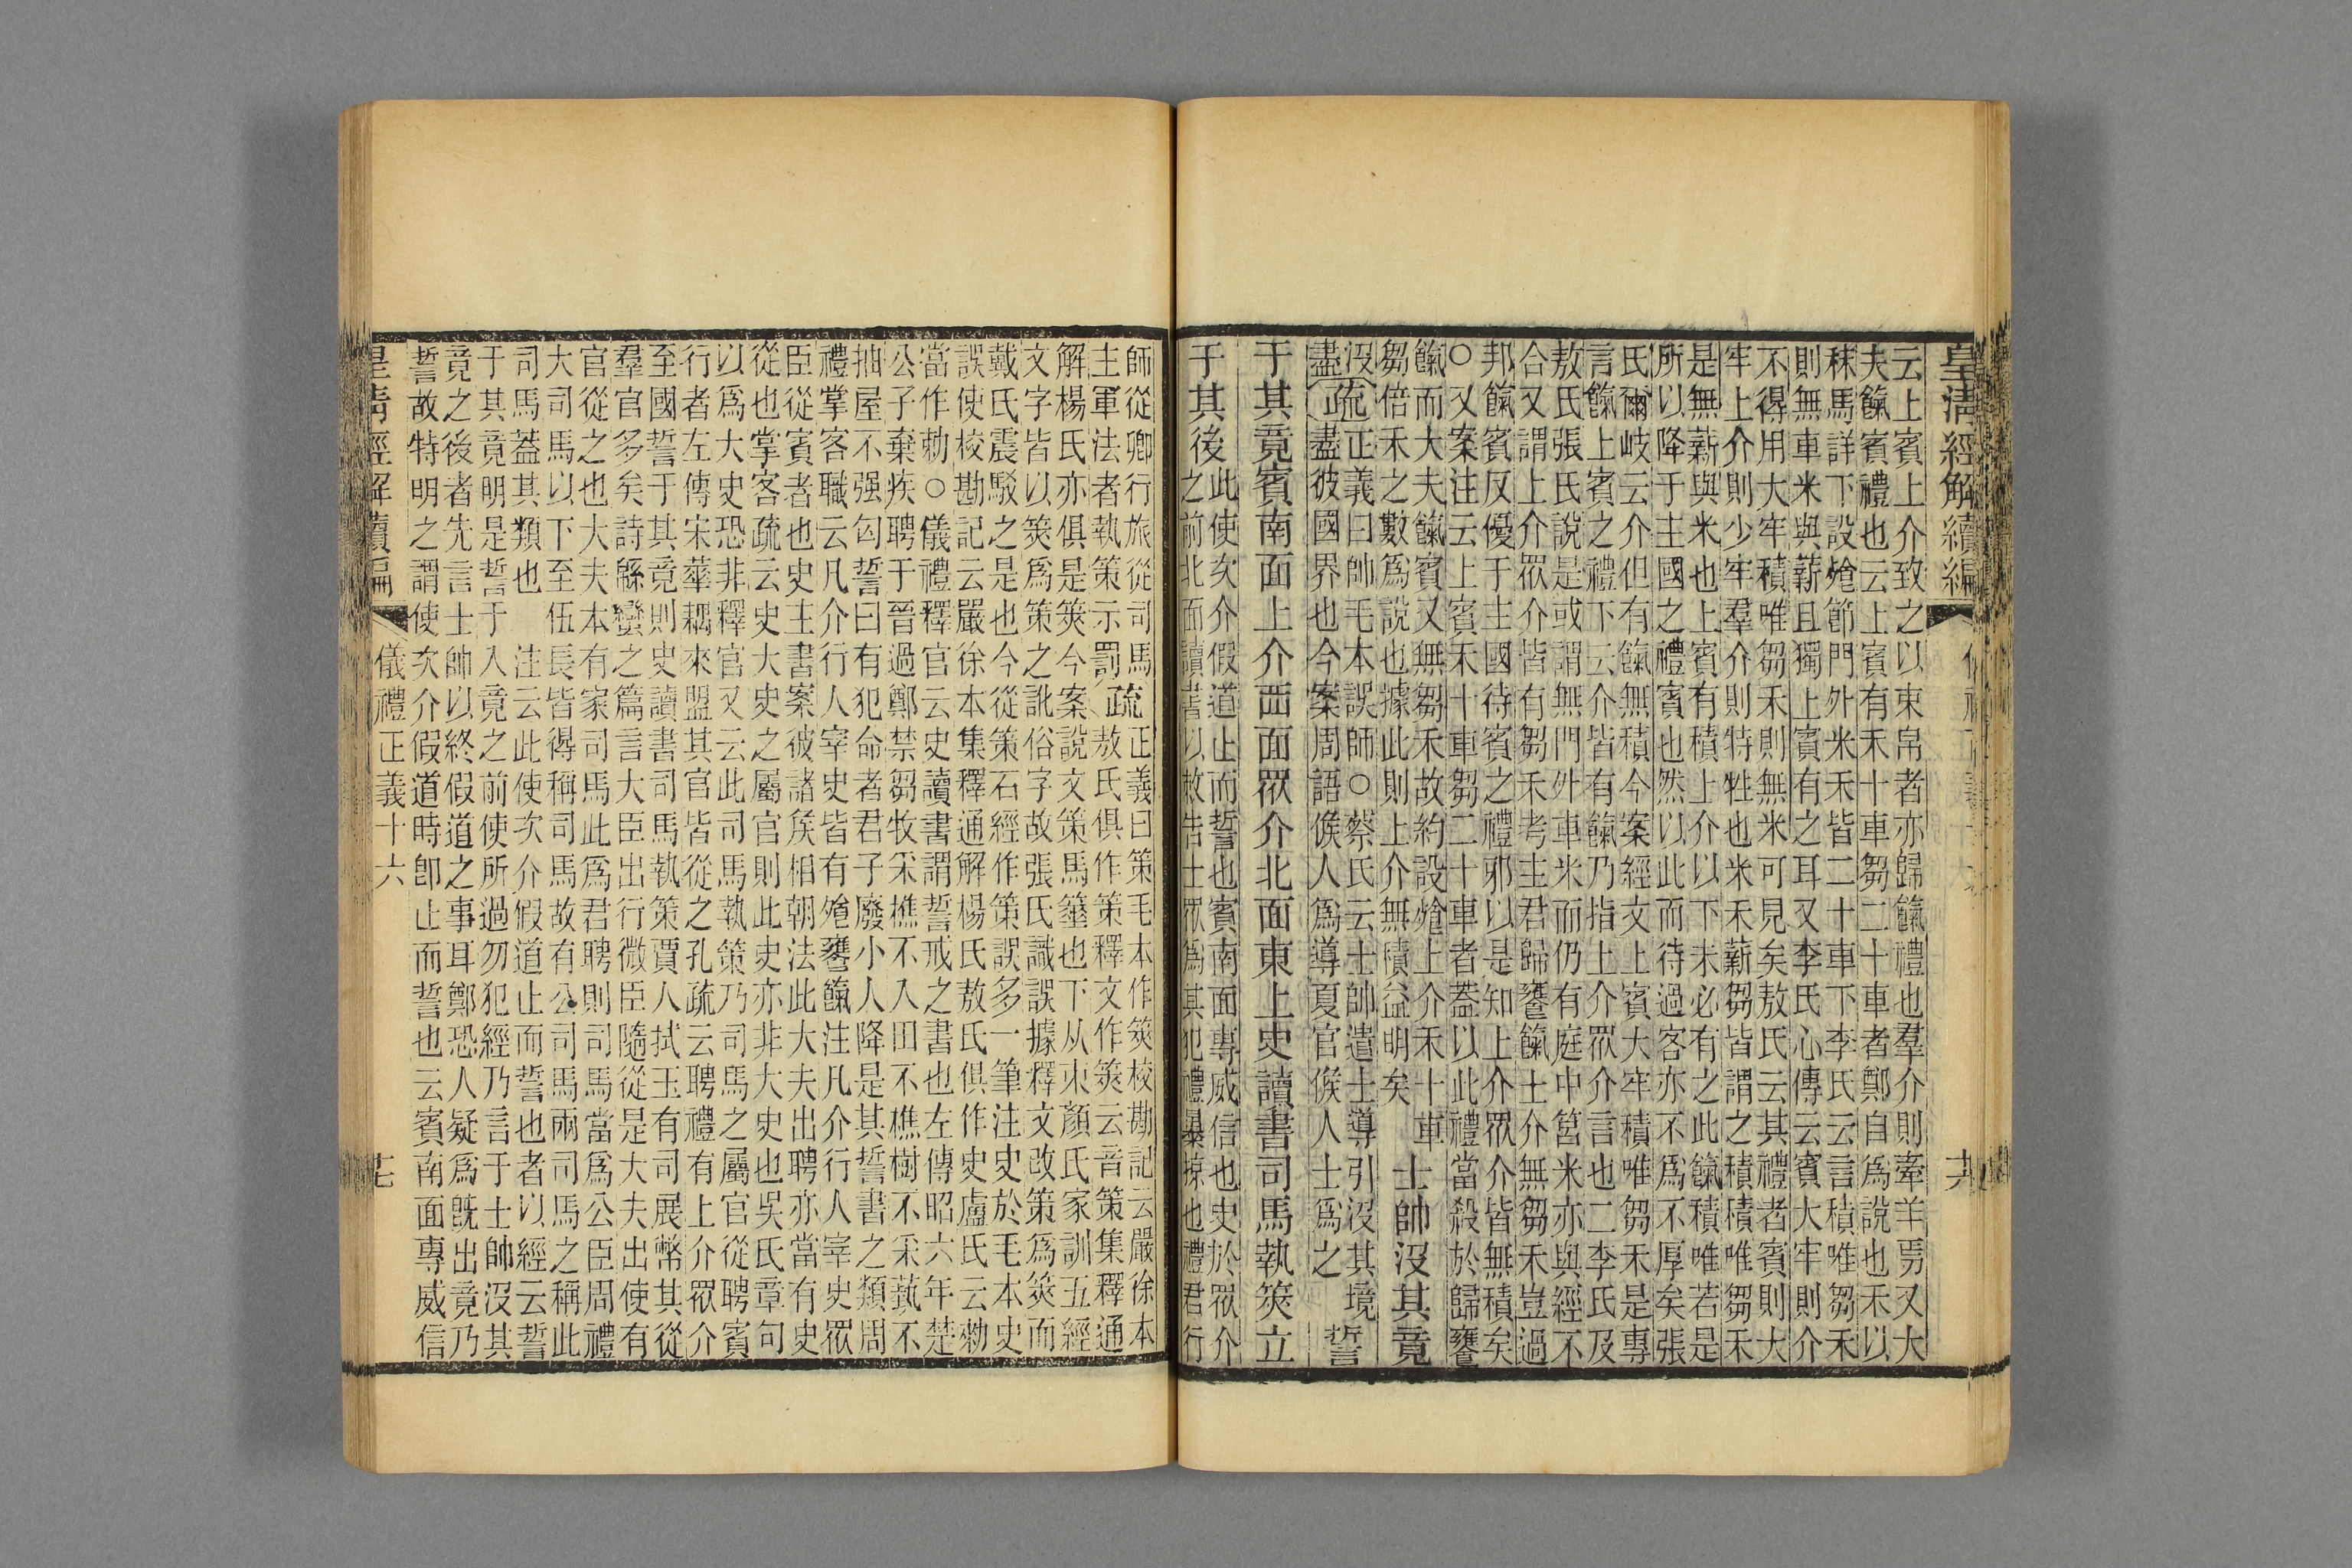 皇清經解續編
儀禮正義十六
十六
云上賓上介致之以束帛者亦歸餼禮也羣介則牽羊焉又大
夫餼賓禮也云上賓有禾十車芻二十車者鄭自爲說也禾以
秣馬詳下設飧節門外米禾皆二十車下李氏云言積唯芻禾
則無車米與薪且獨上賓有之耳又李氏心傳云賓大牢則介
不得用大牢積唯芻禾則無米可見矣敖氏云其禮者賓則大
牢上介則少牢羣介則特牲也米禾薪芻皆謂之積積唯芻禾
是無薪與米也上賓有積上介以下未必有之此餼積唯若是
所以降于主國之禮賓也然以此而待過客亦不爲不厚矣張
氏爾岐云介但有餼無積今案經文上賓大牢積唯芻禾是專
言餼上賓之禮下云介皆有餼乃指上介眾介言也二李氏及
敖氏張氏說是或謂無門外車米而仍有庭中筥米亦與經不
合又謂上介眾介皆有芻禾考主君歸饔餼士介無芻禾豈過
邦餼賓反優于主國待賓之禮邪以是知上介眾介皆無積矣
○又案注云上賓禾十車芻二十車者蓋以此禮當殺於歸饔
餼而大夫餼賓又無芻禾故約設飧上介禾十車
芻倍禾之數爲說也據此則上介無積益明矣
士帥沒其竟
沒
盡
疏
正義曰帥毛本誤師○蔡氏云士帥遣士導引沒其境
盡彼國界也今案周語候人爲導夏官候人士爲之
誓
于其竟賓南面上介西面眾介北面東上史讀書司馬執筴立
于其後
此使次介假道止而誓也賓南面專威信也史於眾介
之前北面讀書以敕告士眾爲其犯禮暴掠也禮君行
師從卿行旅從司馬
主軍法者執策示罰
疏
正義曰策毛本作筴校勘記云嚴徐本
敖氏俱作策釋文作筴云音策集釋通
解楊氏亦俱是筴今案說文策馬箠也下从朿顏氏家訓五經
文字皆以筴爲策之訛俗字故張氏識誤據釋文改策爲筴而
戴氏震駁之是也今從策石經作策誤多一筆注史於毛本史
誤使校勘記云嚴徐本集釋通解楊氏敖氏俱作史盧氏云勑
當作勅○儀禮釋官云史讀書謂誓戒之書也左傳昭六年楚
公子棄疾聘于晉過鄭禁芻牧采樵不入田不樵樹不采蓺不
抽屋不强匄誓曰有犯命者君子廢小人降是其誓書之類周
禮掌客職云凡介行人宰史皆有飧饔餼注凡介行人宰史眾
臣從賓者也史主書案彼諸侯相朝法此大夫出聘亦當有史
從也掌客疏云史大史之屬官則此史亦非大史也吳氏章句
以爲大史恐非釋官又云此司馬執策乃司馬之屬官從聘賓
行者左傳宋華耦來盟其官皆從之孔疏云聘禮有上介眾介
至國誓于其竟則史讀書司馬執策賈人拭玉有司展幣其從
羣官多矣詩緜蠻之篇言大臣出行微臣隨從是大夫出使有
官從之也大夫本有家司馬此爲君聘則司馬當爲公臣周禮
大司馬以下至伍長皆得稱司馬故有公司馬兩司馬之稱此
司馬蓋其類也　注云此使次介假道止而誓也者以經云誓
于其竟明是誓于入竟之前使所過勿犯經乃言于士帥沒其
竟之後者先言士帥以終假道之事耳鄭恐人疑爲既出竟乃
誓故特明之謂使次介假道時卽止而誓也云賓南面專威信
皇清經解續編
儀禮正義十六
十七